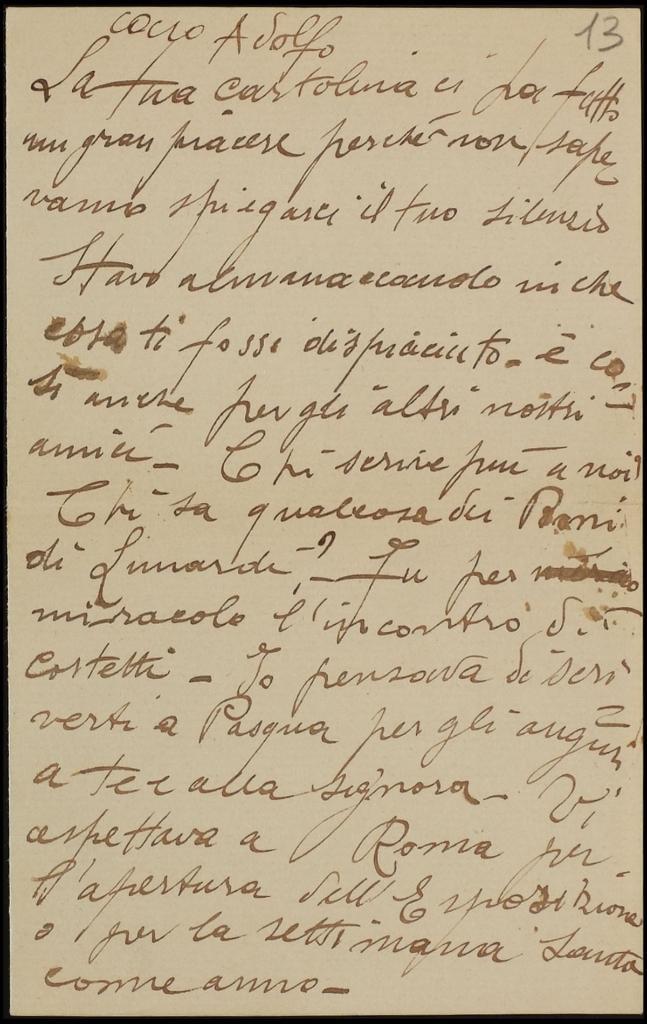 13
caro Adolfo
La tua cartolina ci ha fatto
un gran piacere perchè non sape
vamo spiegarci il tuo silenzio
Stavo almanaccando in che
cosa ti fossi dispiaciuto - è co
sì anche per gli altri nostri
amici - Chi scrive più a noi?
Chi sa qualcosa dei
di Lunardi? - Fu per
miracolo l'incontro di
Costetti - Io pensava di scri
verti a Pasqua per gli auguri
a te e alla signora - Vi
aspettava a Roma per
l'apertura dell'Esposizione
o per la settimana Santa
come anno -